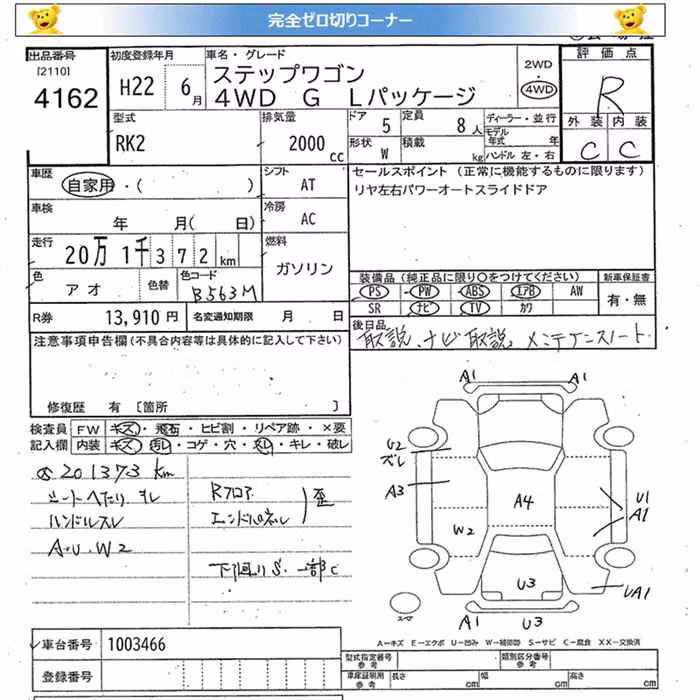 完全ゼロ切りコーナー
出品番号 初度登録年月 車名・グレード 2WD 評価点
[2110] ステップワゴン ・
4162 H22 6月 4WD G Lパッケージ 4WD R
型式 排気量 ドア 5 定員 8人 ディーラー・並行 外装 内装
RK2 2000cc 形状 W 積載 kg モデル年式 年 C C
ハンドル 左・右
車歴 自家用・( ) シフト AT セールスポイント(正常に機能するものに限ります)
リヤ左右パワーオートスライドドア
車検 年 月( 日) 冷房 AC
走行 20万1千372km 燃料 ガソリン
色 アオ 色替 色コード B563M 装備品(純正品に限り○をつけてください) 新車保証書
PS PW ABS エアB AW 有・無
SR ナビ TV カワ
R券 13,910円 名変通知期限 月 日 後日品
取説、ナビ取説、メンテナンスノート
注意事項申告欄(不具合内容等は具体的に記入して下さい)
修復歴 有 [箇所 ]
検査員 FW キズ・飛石・ヒビ割・リペア跡・×要
記入欄 内装 キズ・汚れ・コゲ・穴・スレ・キレ・破レ
201373km
シートヘたり スレ Rフロア
ハンドルスレ エンドパネル 歪
A・U・W2
下廻りS、一部C
A1 A1
U2
ズレ
A3 A4 U1
A1
W2
U3 UA1
スマ
A1 U3
A-キズ E-エクボ U-凹み W-補修跡 S-サビ C-腐食 XX-交換済
車台番号 1003466
型式指定番号 参考 類別区分番号 参考
登録番号 車庫証明用 参考 長さ cm 幅 cm 高さ cm